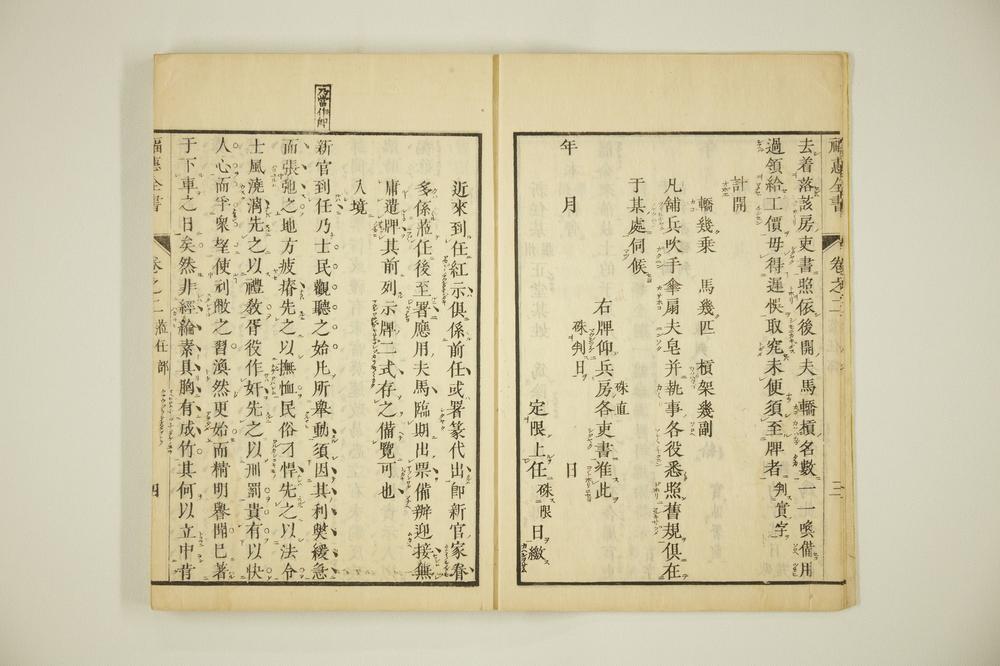 福惠全書 卷之二 三
去着落該房吏書照依後開夫馬轎槓名數一一喚備用
過領給工價毋得遲悞取究未便須至牌者 判實字
計開
轎幾乘 馬幾匹 槓架幾副
凡舖兵吹手傘扇夫皂并執事各役悉照舊規俱在
于某處伺候
右牌仰兵房各吏書准此
硃直
硃判日
年 月 日
定限上任硃限日繳
近來到任紅示俱係前任或署篆代出即新官家眷
多係蒞任後至署應用夫馬臨期出票備辦迎接無
庸遣牌其前列示牌二式存之備覽可也
入境
乃當作即
新官到任乃士民觀聽之始凡所舉動須因其利獘緩急
而張弛之地方疲瘠先之以撫恤民俗刁悍先之以法令
士風澆漓先之以禮教胥役作奸先之以刑罰貴有以快
人心而孚衆望使刓敝之習渙然更始而精明譽聞已著
于下車之日矣然非經綸素具胸有成竹其何以立中肯
福惠全書 卷之二 蒞任部 四